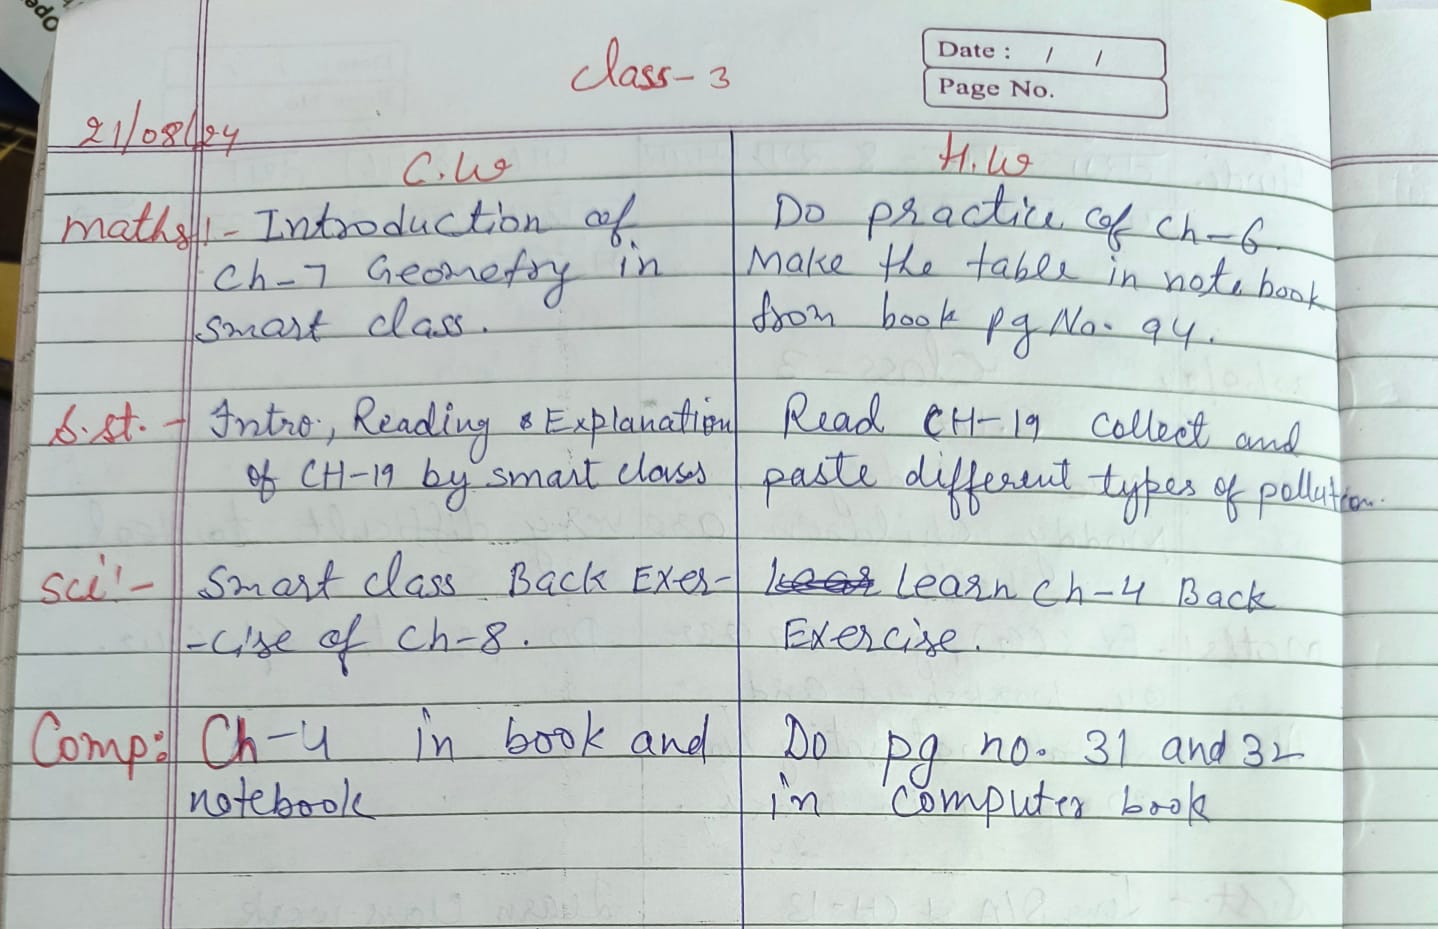 Ope
class-3
Date : / /
Page No.
21/08/24
C.W
H.W
maths:- Introduction of
Ch-7 Geometry in
smart class.
Do practice of Ch-6.
Make the table in notebook
from book pg No. 94.
S.st. - Intro., Reading & Explanation
of CH-19 by smart class
Read CH-19 Collect and
paste different types of pollution.
Sci:- Smart class Back Exer-
-cise of Ch-8.
Learn Ch-4 Back
Exercise.
Comp: Ch-4 in book and
notebook
Do pg no. 31 and 32
in computer book